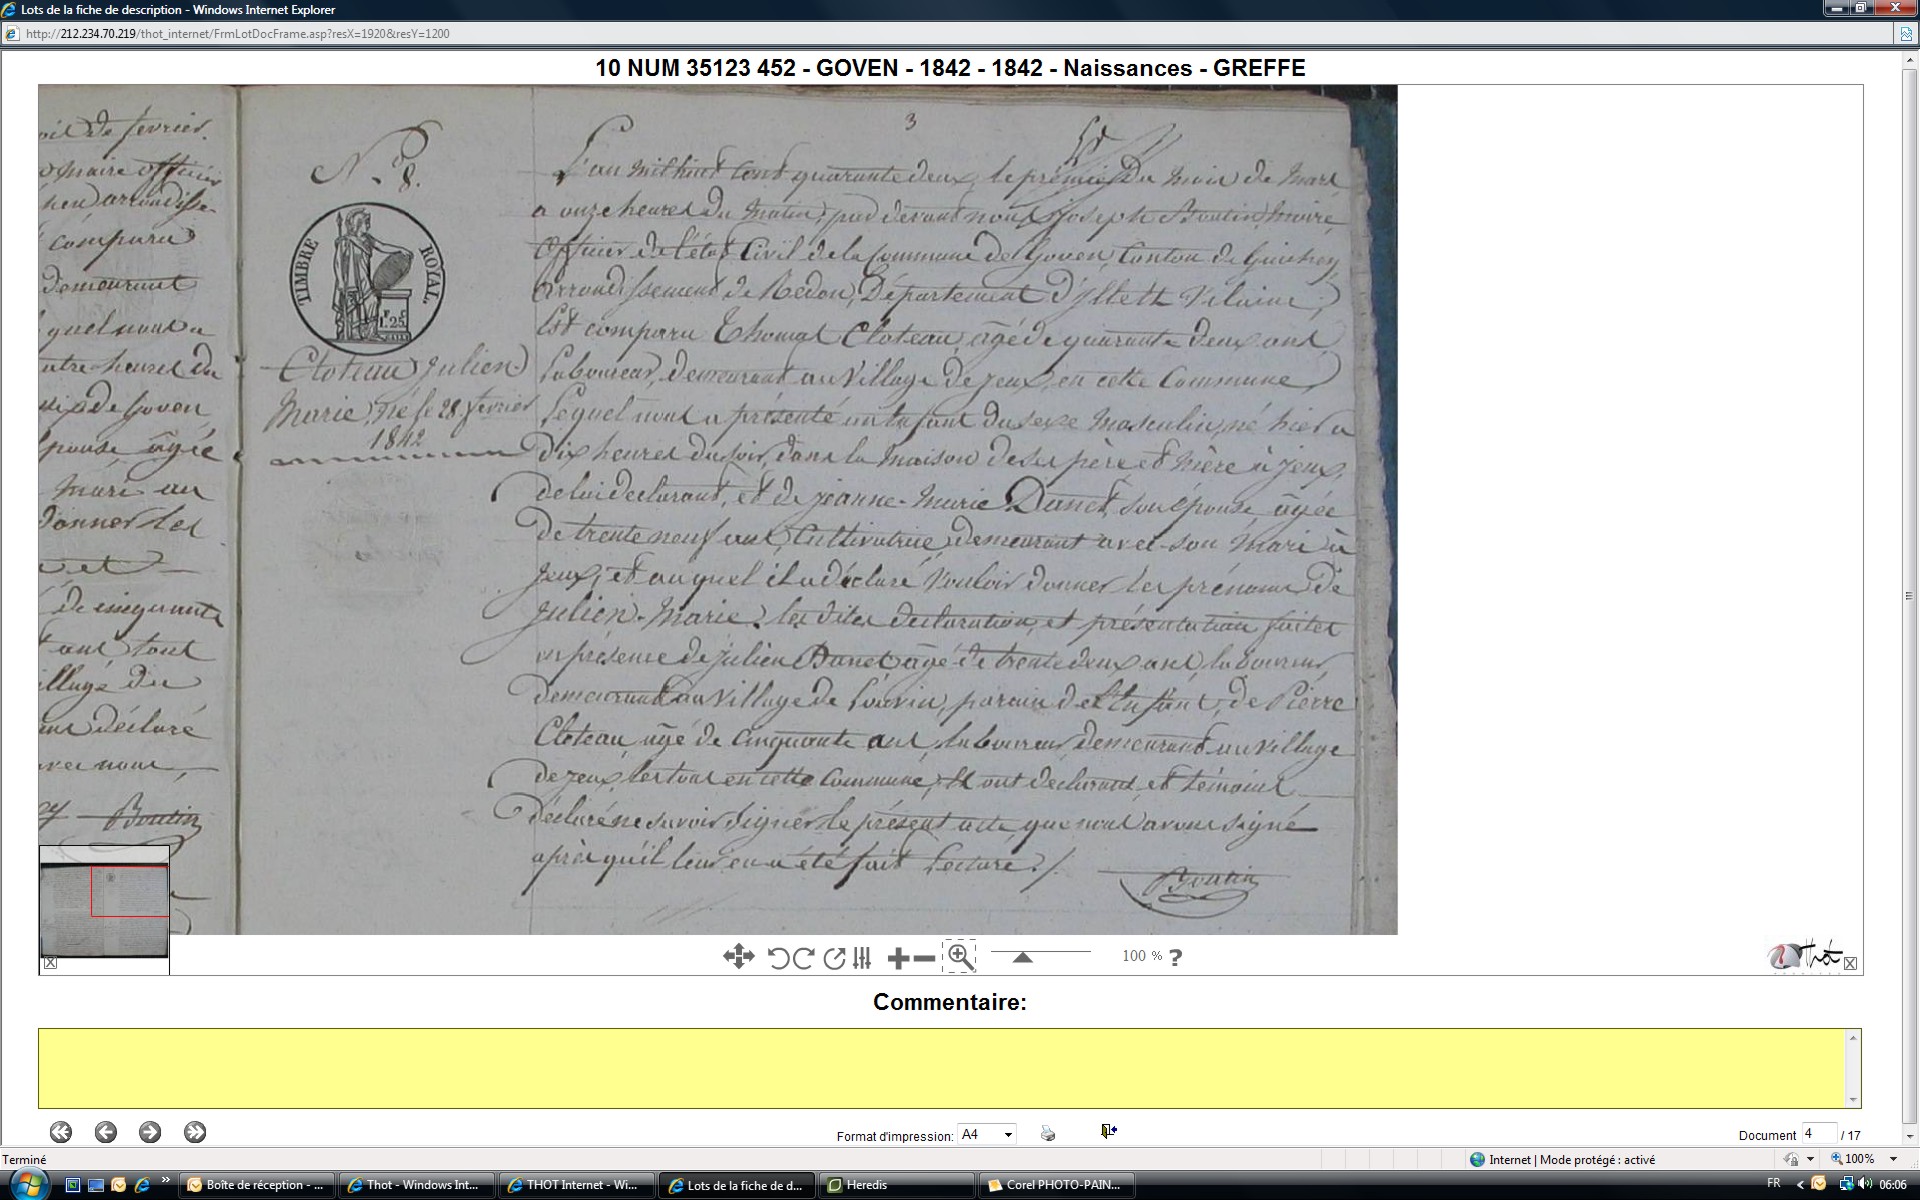 Lots de la fiche de description - Windows Internet Explorer
http://212.234.70.219/thot_internet/FrmLotDocFrame.asp?resX=1920&resY=1200
10 NUM 35123 452 - GOVEN - 1842 - 1842 - Naissances - GREFFE
oil de fevrier.
maire officier
compara
demeurant
quel nous a
heures du
de Goven
épouse agée
mari au
donner les
de cinquante
ans tout
village du
déclaré
avec nous,
Boutin
N.° 8.
TIMBRE ROYAL.
F. C.
1.25
Cloteau Julien
Marie, né le 28 fevrier
1842
3
L'an mil huit cent quarante deux, le premier du mois de Mars
a onze heures du matin, par devant nous joseph Boutin, maire
officier de l'état Civil de la Commune de Goven, Canton de Guichen
arrondissement de Redon, Département d'Ille et Vilaine,
Est comparu Thomas Cloteau, agé de quarante deux ans
laboureur, demeurant au Village de jeux, en cette Commune
lequel nous a présenté un enfant du sexe masculin, né hier a
dix heures du soir, dans la maison de ses père et mère à jeux,
de lui déclarant, et de jeanne-Marie Danet, son épouse agée
de trente neuf ans, Cultivatrice, demeurant avec son Mari à
jeux, et auquel il a déclaré Vouloir donner les prénoms de
Julien-Marie. les dites declaration, et présentation faites
en présence de julien Danet agé de trente deux ans laboureur
demeurant au Village de Louvin, parain de l'Enfant, de Pierre
Cloteau, agé de Cinquante ans, laboureur demeurant au village
de jeux, les tous en cette Commune, et ont declarant, et témoins
déclaré ne savoir signer le présent acte, que nous avons signé
après qu'il leur en a été fait Lecture./.
Boutin
100 % ?
Thot
Commentaire:
Format d'impression: A4
Document 4 / 17
Terminé
Internet | Mode protégé : activé
100%
Boîte de réception - ...
Thot - Windows Int...
THOT Internet - Wi...
Lots de la fiche de d...
Heredis
Corel PHOTO-PAIN...
FR
06:06